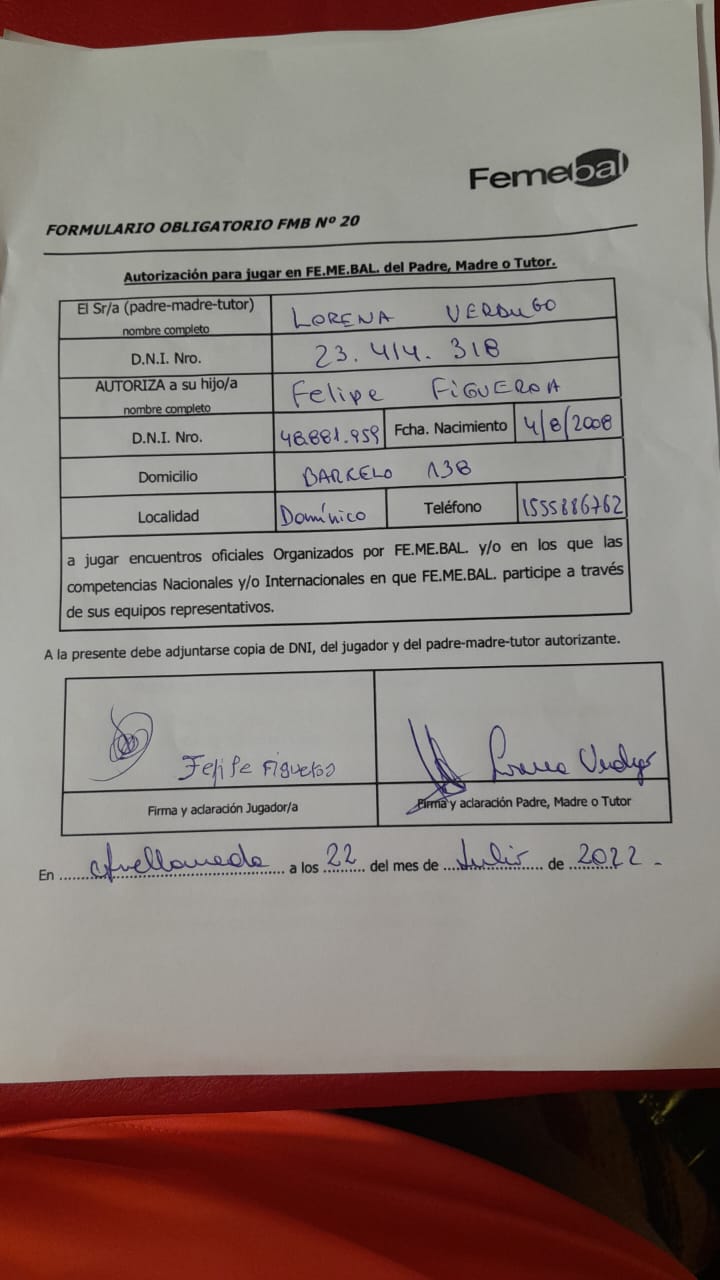 Femebal
FORMULARIO OBLIGATORIO FMB Nº 20
Autorización para jugar en FE.ME.BAL. del Padre, Madre o Tutor.
El Sr/a (padre-madre-tutor) nombre completo LORENA VERDUGO
D.N.I. Nro. 23.414.318
AUTORIZA a su hijo/a nombre completo Felipe FIGUEROA
D.N.I. Nro. 48.881.959 Fcha. Nacimiento 4/8/2008
Domicilio BARCELO 138
Localidad Domínico Teléfono 1555886762
a jugar encuentros oficiales Organizados por FE.ME.BAL. y/o en los que las
competencias Nacionales y/o Internacionales en que FE.ME.BAL. participe a través
de sus equipos representativos.
A la presente debe adjuntarse copia de DNI, del jugador y del padre-madre-tutor autorizante.
Felipe Figueroa Lorena Verdugo
Firma y aclaración Jugador/a Firma y aclaración Padre, Madre o Tutor
En Avellaneda a los 22 del mes de Julio de 2022.